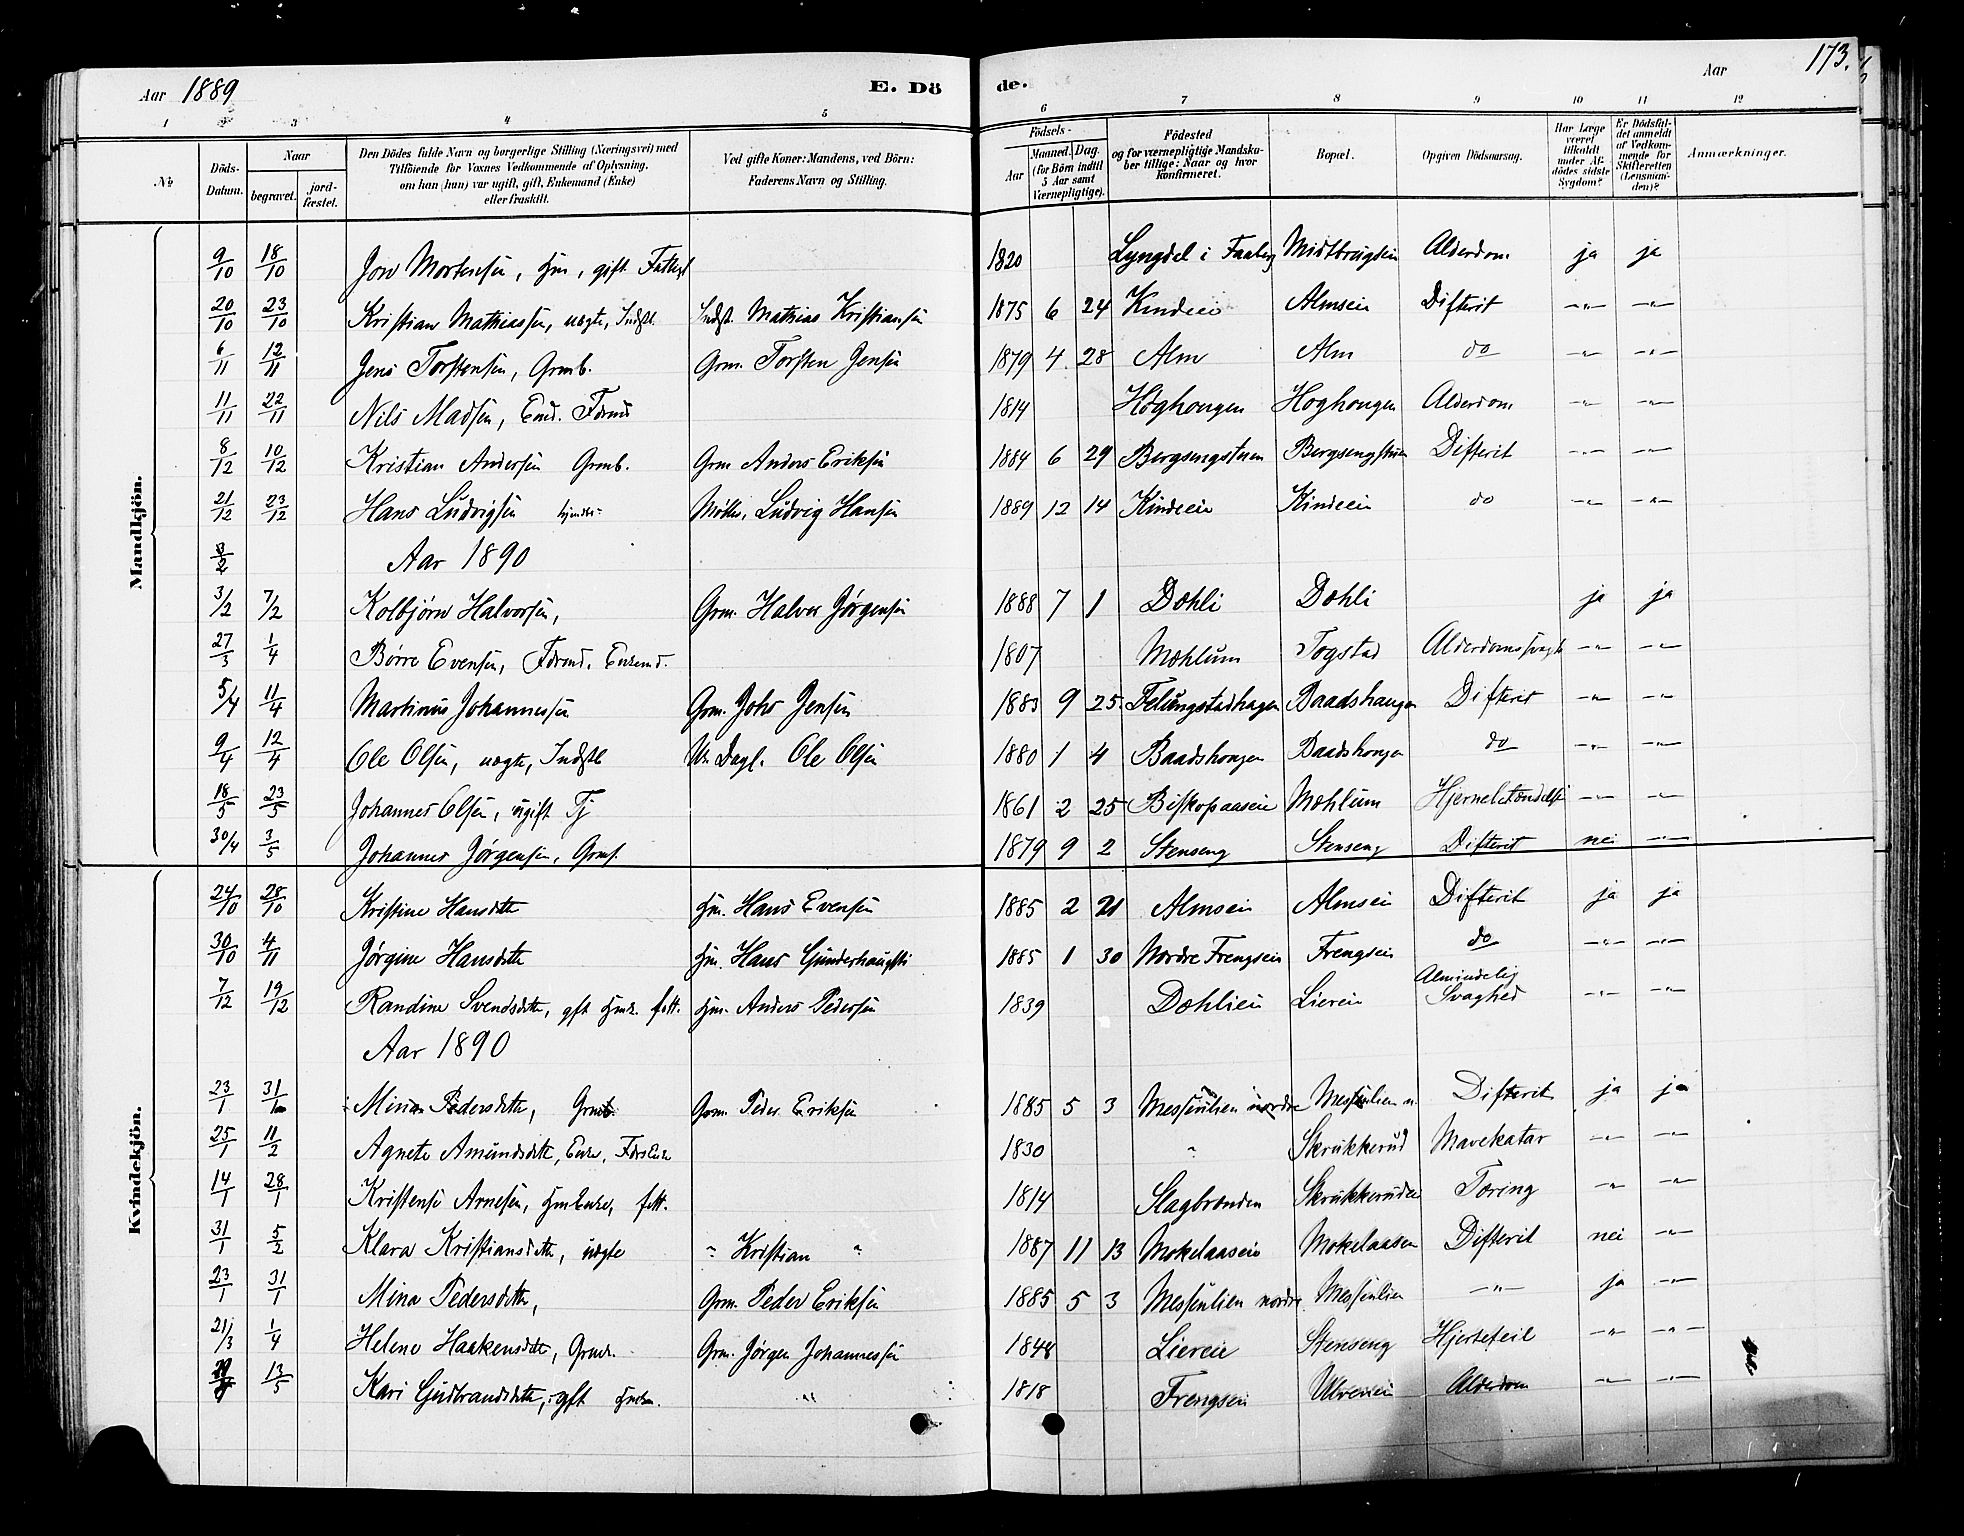 Aar 1889 E. Dö de. Aar 173.
1 2 3 4 5 6 7 8 9 10 11 12
No
Döds-Datum.
Naar
begravet.
jordfæstet.
Den Dödes fulde Navn og borgerlige Stilling (Næringsvei) med Tilföiende for Voxnes Vedkommende af Oplysning, om han (hun) var ugift, gift, Enkemand (Enke) eller fraskilt.
Ved gifte Koner: Mandens, ved Börn: Faderens Navn og Stilling.
Födsels-
Aar
Maaned. Dag.
(for Börn indtil 5 Aar samt Værnepligtige).
Födested
og for værnepligtige Mandskaber tillige: Naar og hvor Konfirmeret.
Bopæl.
Opgiven Dödsaarsag.
Har Læge været tilkaldt under Afdödes sidste Sygdom?
Er Dödsfaldet anmeldt af Vedkommende for Skifteretten (Lensmanden)?
Anmærkninger.
Mandkjön.
9/10 18/10 Jon Mortensen, Hm, gift 1820 Lyngdel i Faaberg Midtbrugseie Alderdom ja ja
20/10 23/10 Kristian Mathiassen, uægte, Indst. Indst. Mathias Kristiansen 1875 6 24 Kindeie Almseie Difterit -"- -"-
6/11 12/11 Jens Torstensen, Grmb. Grm. Torsten Jensen 1879 4 28 Alm Alm do -"- -"-
11/11 22/11 Nils Madsen, Enk. 1814 Høghougen Hoghougen Alderdom -"- -"-
8/12 10/12 Kristian Andersen Grmb. Grm Anders Eriksen 1884 6 29 Bergsengstuen Bergsengstuen Difterit -"- -"-
21/12 23/12 Hans Ludvigsen Møller, Ludvig Hansen 1889 12 14 Kindeeie Kindeeie do -"- -"-
Aar 1890
3/2 7/2 Kolbjörn Halvorsen, Grm. Halvor Jørgensen 1888 7 1 Dæhli Dæhli ja ja
27/3 1/4 Børre Evensen, Enkemd. 1807 Mæhlum Togstad Alderdomssvagh -"- -"-
5/4 11/4 Martinus Johannessen Grm. Johs Jensen 1883 9 25 Felungstadhagen Baadshaugen Difterit -"- -"-
9/4 12/4 Ole Olsen, uægte, Indst Un Dagl. Ole Olsen 1880 1 4 Baadshougen Baadshougen do -"- -"-
18/5 23/5 Johannes Olsen, ugift Tj 1861 2 25 Biskopaaseie Mæhlum Hjernebetændelse -"- -"-
30/4 3/5 Johannes Jørgensen, Grms. 1879 9 2 Stenseng Stenseng Difterit nei -"-
Kvindekjön.
24/10 28/10 Kristine Hansdtr Hm. Hans Evensen 1885 2 21 Almseie Almseie Difterit ja ja
30/10 4/11 Jørgine Hansdtr Hm. Hans Gunderhaugen 1885 1 30 Nordre Frengseie Frengseie do -"- -"-
7/12 19/12 Randine Svendsdtr, gft Hmk. fatt. Hm. Anders Pedersen 1839 Dæhlieie Liereie Almindelig Svaghed -"- -"-
Aar 1890
23/1 31/1 Mina Pedersdtr, Grmb. Grm. Peder Eriksen 1885 5 3 Messenlien nordre Messenlien n. Difterit ja ja
25/1 11/2 Agnete Amundsdtr, Enke, 1830 " Skrukkerud Mavekatar -"- -"-
14/1 28/1 Kristense Arnesen, HmEnke, fatt. 1814 Slagbrenden Skrukkeruden Tæring -"- -"-
31/1 5/2 Klara Kristiansdtr, uægte " Kristian " 1887 11 13 Mokelaaseie Mokelaasen Difterit nei -"-
23/1 31/1 Mina Pedersdtr, Grm. Peder Eriksen 1885 5 3 Messenlien nordre Messenlien -"- ja -"-
21/3 1/4 Helene Haakensdtr, Grmk. Grm. Jørgen Johannessen 1848 Liereie Stenseng Hjertefeil -"- -"-
13/5 Kari Gudbrandsdtr, gft Hmkn. " 1818 Frengseie Ulveneie Alderdom -"- -"-